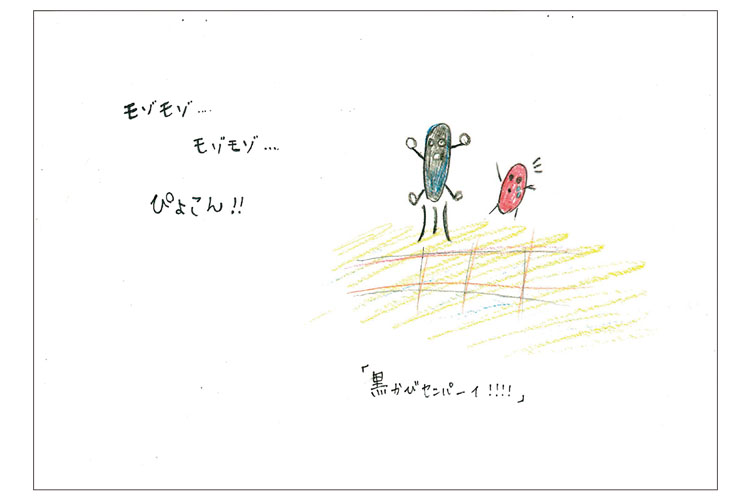 モゾモゾ....
モゾモゾ....
ぴょこん!!
「黒かびセンパーイ!!!!」